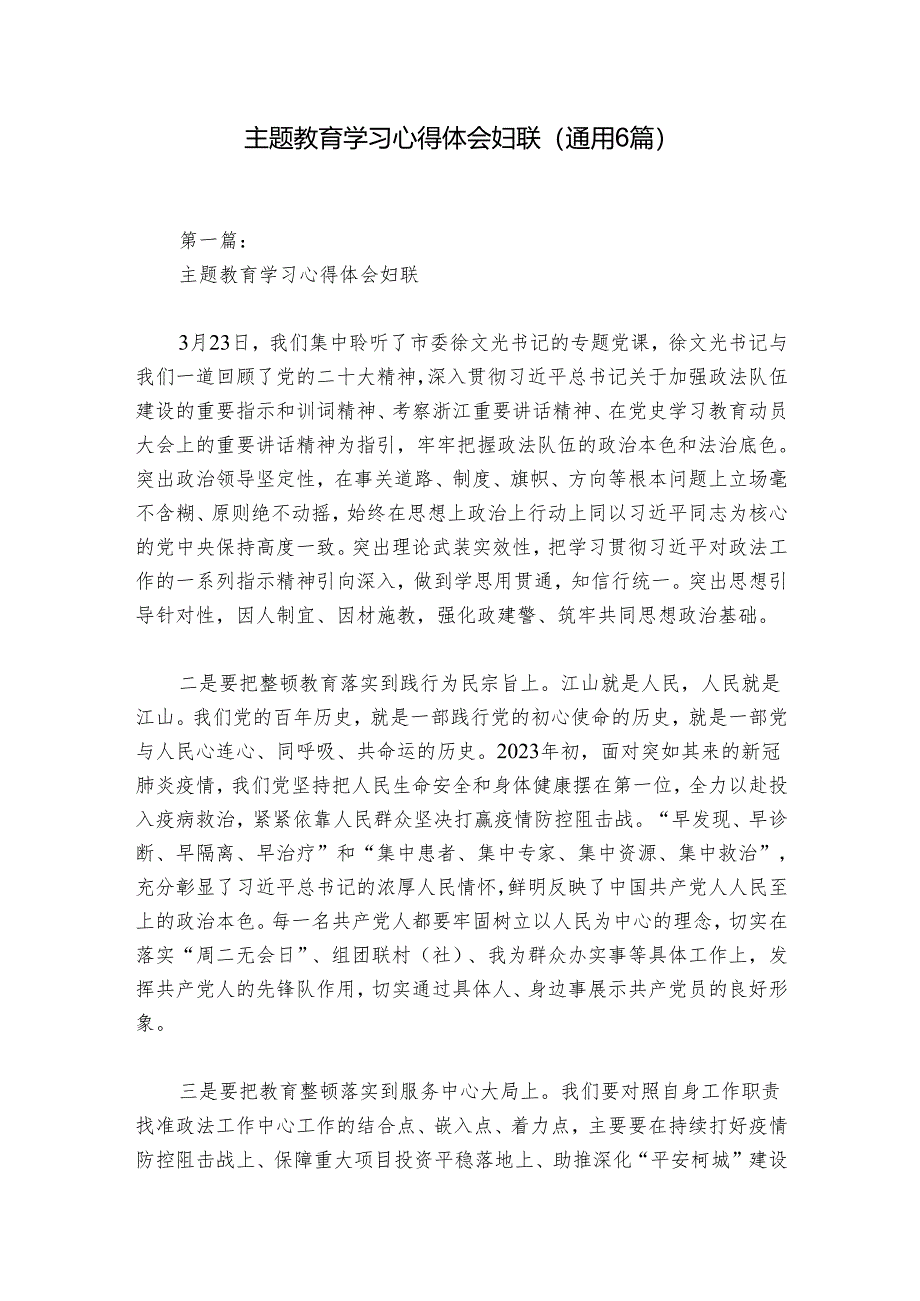 主题教育学习心得体会妇联（通用6篇）
第一篇：
主题教育学习心得体会妇联
3月23日，我们集中聆听了市委徐文光书记的专题党课，徐文光书记与
我们一道回顾了党的二十大精神，深入贯彻习近平总书记关于加强政法队伍
建设的重要指示和训词精神、考察浙江重要讲话精神、在党史学习教育动员
大会上的重要讲话精神为指引，牢牢把握政法队伍的政治本色和法治底色。
突出政治领导坚定性，在事关道路、制度、旗帜、方向等根本问题上立场毫
不含糊、原则绝不动摇，始终在思想上政治上行动上同以习近平同志为核心
的党中央保持高度一致。突出理论武装实效性，把学习贯彻习近平对政法工
作的一系列指示精神引向深入，做到学思用贯通，知信行统一。突出思想引
导针对性，因人制宜、因材施教，强化政建警、筑牢共同思想政治基础。
二是要把整顿教育落实到践行为民宗旨上。江山就是人民，人民就是
江山。我们党的百年历史，就是一部践行党的初心使命的历史，就是一部党
与人民心连心、同呼吸、共命运的历史。2023年初，面对突如其来的新冠
肺炎疫情，我们党坚持把人民生命安全和身体健康摆在第一位，全力以赴投
入疫病救治，紧紧依靠人民群众坚决打赢疫情防控阻击战。“早发现、早诊
断、早隔离、早治疗”和“集中患者、集中专家、集中资源、集中救治”，
充分彰显了习近平总书记的浓厚人民情怀，鲜明反映了中国共产党人人民至
上的政治本色。每一名共产党人都要牢固树立以人民为中心的理念，切实在
落实“周二无会日”、组团联村（社）、我为群众办实事等具体工作上，发
挥共产党人的先锋队作用，切实通过具体人、身边事展示共产党员的良好形
象。
三是要把教育整顿落实到服务中心大局上。我们要对照自身工作职责
找准政法工作中心工作的结合点、嵌入点、着力点，主要要在持续打好疫情
防控阻击战上、保障重大项目投资平稳落地上、助推深化“平安柯城”建设